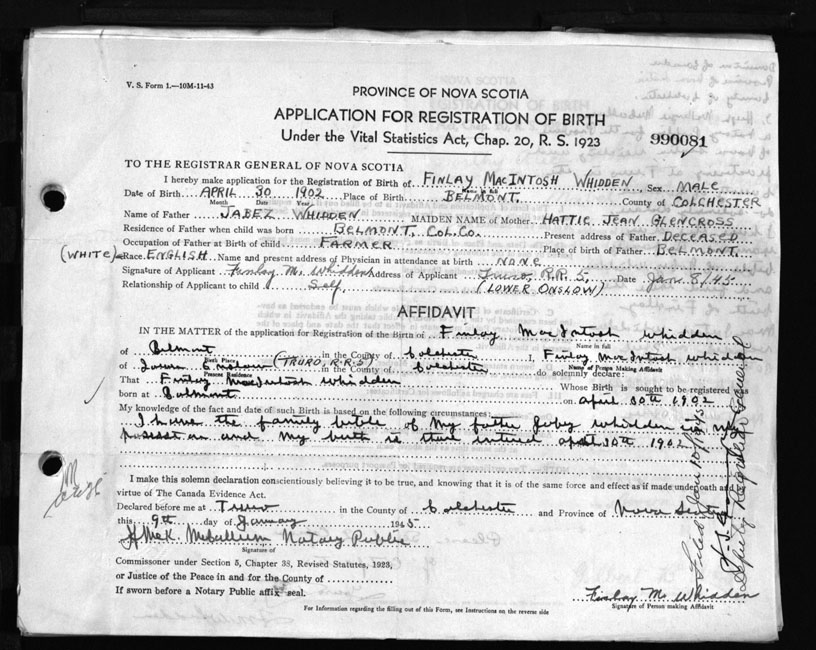 V. S. Form 1.—10M-11-43
PROVINCE OF NOVA SCOTIA
APPLICATION FOR REGISTRATION OF BIRTH
Under the Vital Statistics Act, Chap. 20, R. S. 1923
990081
TO THE REGISTRAR GENERAL OF NOVA SCOTIA
I hereby make application for the Registration of Birth of FINLAY MACINTOSH WHIDDEN Sex MALE
Name in full
Date of Birth APRIL 30 1902 Place of Birth BELMONT. County of COLCHESTER
Month Date Year
Name of Father JABEZ WHIDDEN MAIDEN NAME of Mother HATTIE JEAN GLENCROSS
Residence of Father when child was born BELMONT, COL. CO. Present address of Father DECEASED
Occupation of Father at Birth of child FARMER Place of birth of Father BELMONT.
(WHITE) Race ENGLISH Name and present address of Physician in attendance at birth NONE
Signature of Applicant Finlay M. Whidden Address of Applicant Truro, R.R. 5, Date Jan. 8/45
Relationship of Applicant to child Self (LOWER ONSLOW)
AFFIDAVIT
IN THE MATTER of the application for Registration of the Birth of Finlay MacIntosh Whidden
Name in full
of Belmont in the County of Colchester I, Finlay MacIntosh Whidden
Birth Place Name of Person Making Affidavit
of Lower Onslow (TRURO, R.R.5) in the County of Colchester do solemnly declare:
Present Residence
That Finlay MacIntosh Whidden Whose Birth is sought to be registered was
born at Belmont on April 30th 1902
My knowledge of the fact and date of such Birth is based on the following circumstances:
I have the family bible of my father Jabez Whidden in my
possesion and my birth is there intered April 30th 1902
I make this solemn declaration conscientiously believing it to be true, and knowing that it is of the same force and effect as if made under oath and by
virtue of The Canada Evidence Act.
Declared before me at Truro in the County of Colchester and Province of Nova Scotia
this 9th day of January 1945
H MacK. McCallum Notary Public
Signature of
Commissioner under Section 5, Chapter 38, Revised Statutes, 1923,
or Justice of the Peace in and for the County of
If sworn before a Notary Public affix seal.
Finlay M. Whidden
Signature of Person making Affidavit
For Information regarding the filling out of this Form, see Instructions on the reverse side
Deputy Registrar General